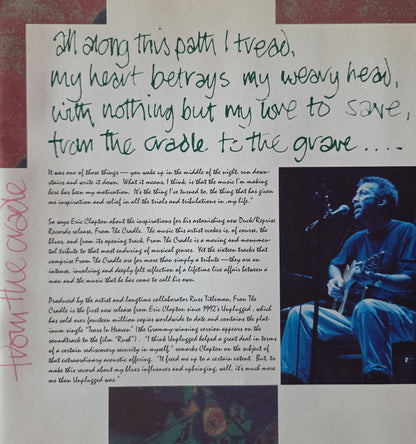 all along this path I tread,
my heart betrays my weary head,
with nothing but my love to save,
from the cradle to the grave....
from the cradle
It was one of those things — you wake up in the middle of the night, run down-
stairs and write it down.  What it means, I think, is that the music I'm making
here has been my motivation.  It's the thing I've turned to, the thing that has given
me inspiration and relief in all the trials and tribulations in my life."
So says Eric Clapton about the inspirations for his astonishing new Duck/Reprise
Records release, From The Cradle.  The music this artist evokes is, of course, the
blues, and from its opening track, From The Cradle is a moving and monumen-
tal tribute to that most enduring of musical genres.  Yet the sixteen tracks that
comprise From The Cradle are far more than simply a tribute — they are an
intense, involving and deeply felt reflection of a lifetime love affair between a
man and the music that he has come to call his own.
Produced by the artist and longtime collaborator Russ Titleman, From The
Cradle is the first new release from Eric Clapton since 1992's Unplugged, which
has sold over fourteen million copies worldwide to date and contains the plat-
inum single "Tears In Heaven" (the Grammy-winning version appears on the
soundtrack to the film "Rush").  "I think Unplugged helped a great deal in terms
of a certain rediscovery security in myself," remarks Clapton on the subject of
that extraordinary acoustic offering.  "It freed me up to a certain extent.  But, to
make this record about my blues influences and upbringing, well, it's much more
me than Unplugged was."